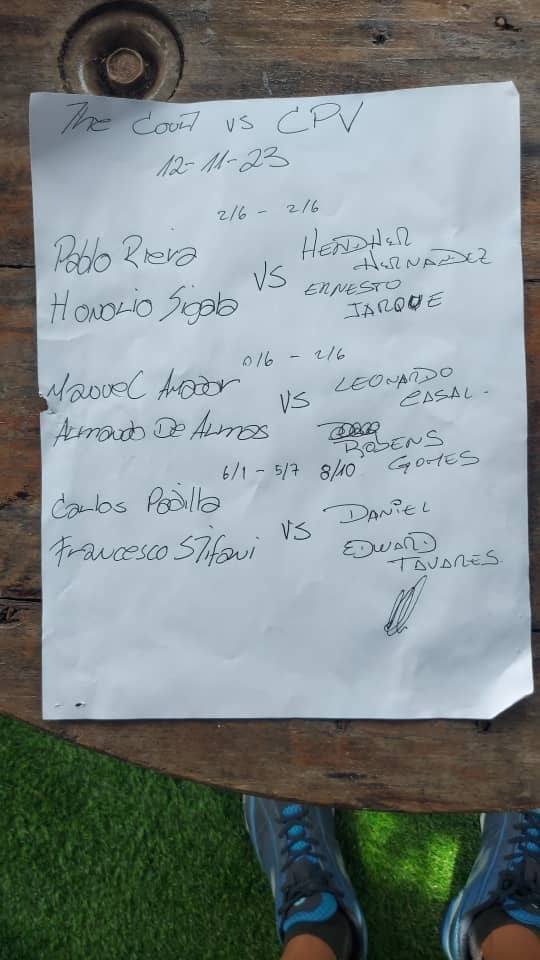 The Court vs CPV
12-11-23
2/6 - 2/6
Pablo Riera
Honolio Sigala
VS
HENDHER
HERNANDEZ
ERNESTO
JARQUE
0/6 - 2/6
Manuel Amador
Armando De Armas
VS
LEONARDO
CASAL.
RODENS
GOMES
6/1 - 5/7 8/10
Carlos Padilla
Francesco Stifani
VS
DANIEL
EDWARD
TAVARES.